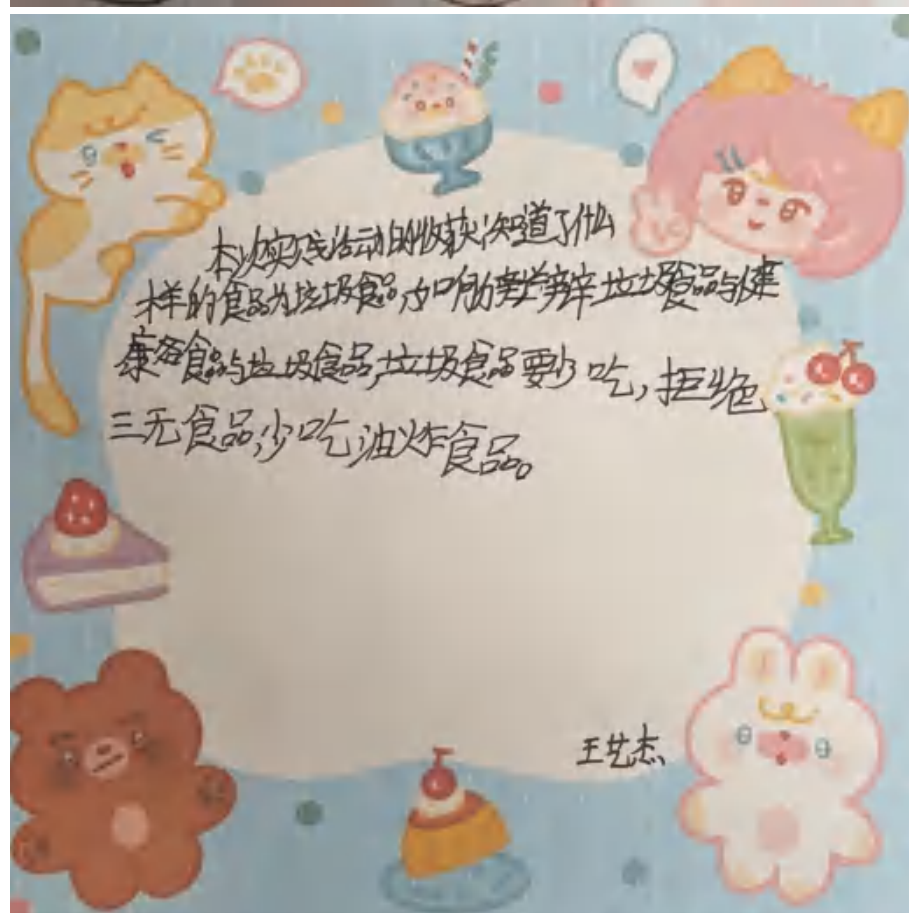 本次实践活动的收获:知道了什么
样的食品为垃圾食品,如何分辨垃圾食品与健
康食品与垃圾食品,垃圾食品要少吃,拒绝
三无食品,少吃油炸食品。
王艺杰